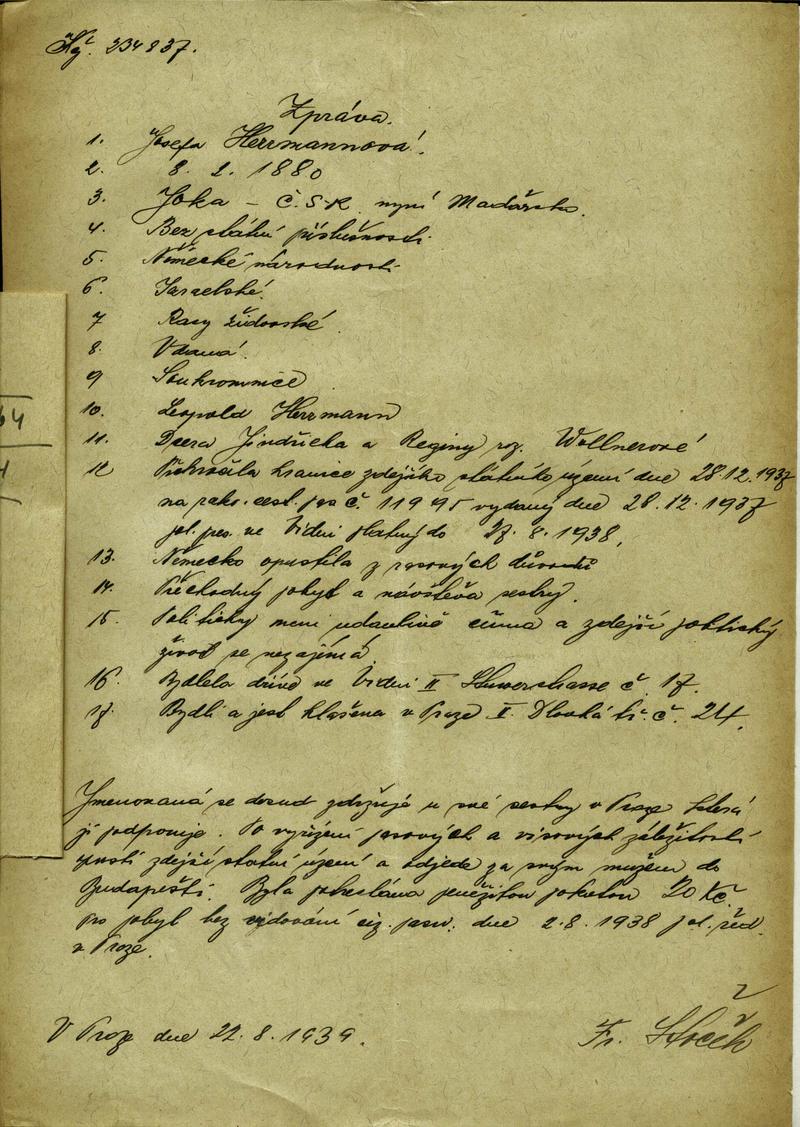 234837.
Zpráva.
1. Josefa Herrmannová.
2. 8. 2. 1880
3. Joka – Č.S.R. nyní Maďarsko.
4. Bez státní příslušnosti.
5. Německé národnosti
6. Israelské.
7 Rasy židovské
8. Vdaná.
9 Soukromnice
10. Leopold Herrmann
11. Dcera Jindřicha a Reginy roz. Wollnerové
12 Překročila hranice zdejšího státního území dne 28.12.1937
na rak. cest. pas č. 11995 vydaný dne 28.12.1937
pol. ve Vídni platný do 8. 1938,
13. Německo opustila z rasových důvodů
14. Přechodný pobyt a návštěva sestry.
15. Politicky není činna a zdejší politický
život se nezajímá
16. Bydlela dříve ve Vídni II č. 17.
17. Bydlí a jest hlášena v Praze I. Dlouhá tř. č. 24.
Jmenovaná se dosud zdržuje u své sestry v Praze která
ji podporuje. Po vyřízení pasových a visových záležitostí
opustí zdejší státní území a odjede za svým mužem do
Budapešti. Byla potrestána peněžitou pokutou 20 Kč.
pro pobyt bez dne 2.8.1938 pol. řed.
v Praze.
V Praze dne 22.8.1939.
Fr.
64